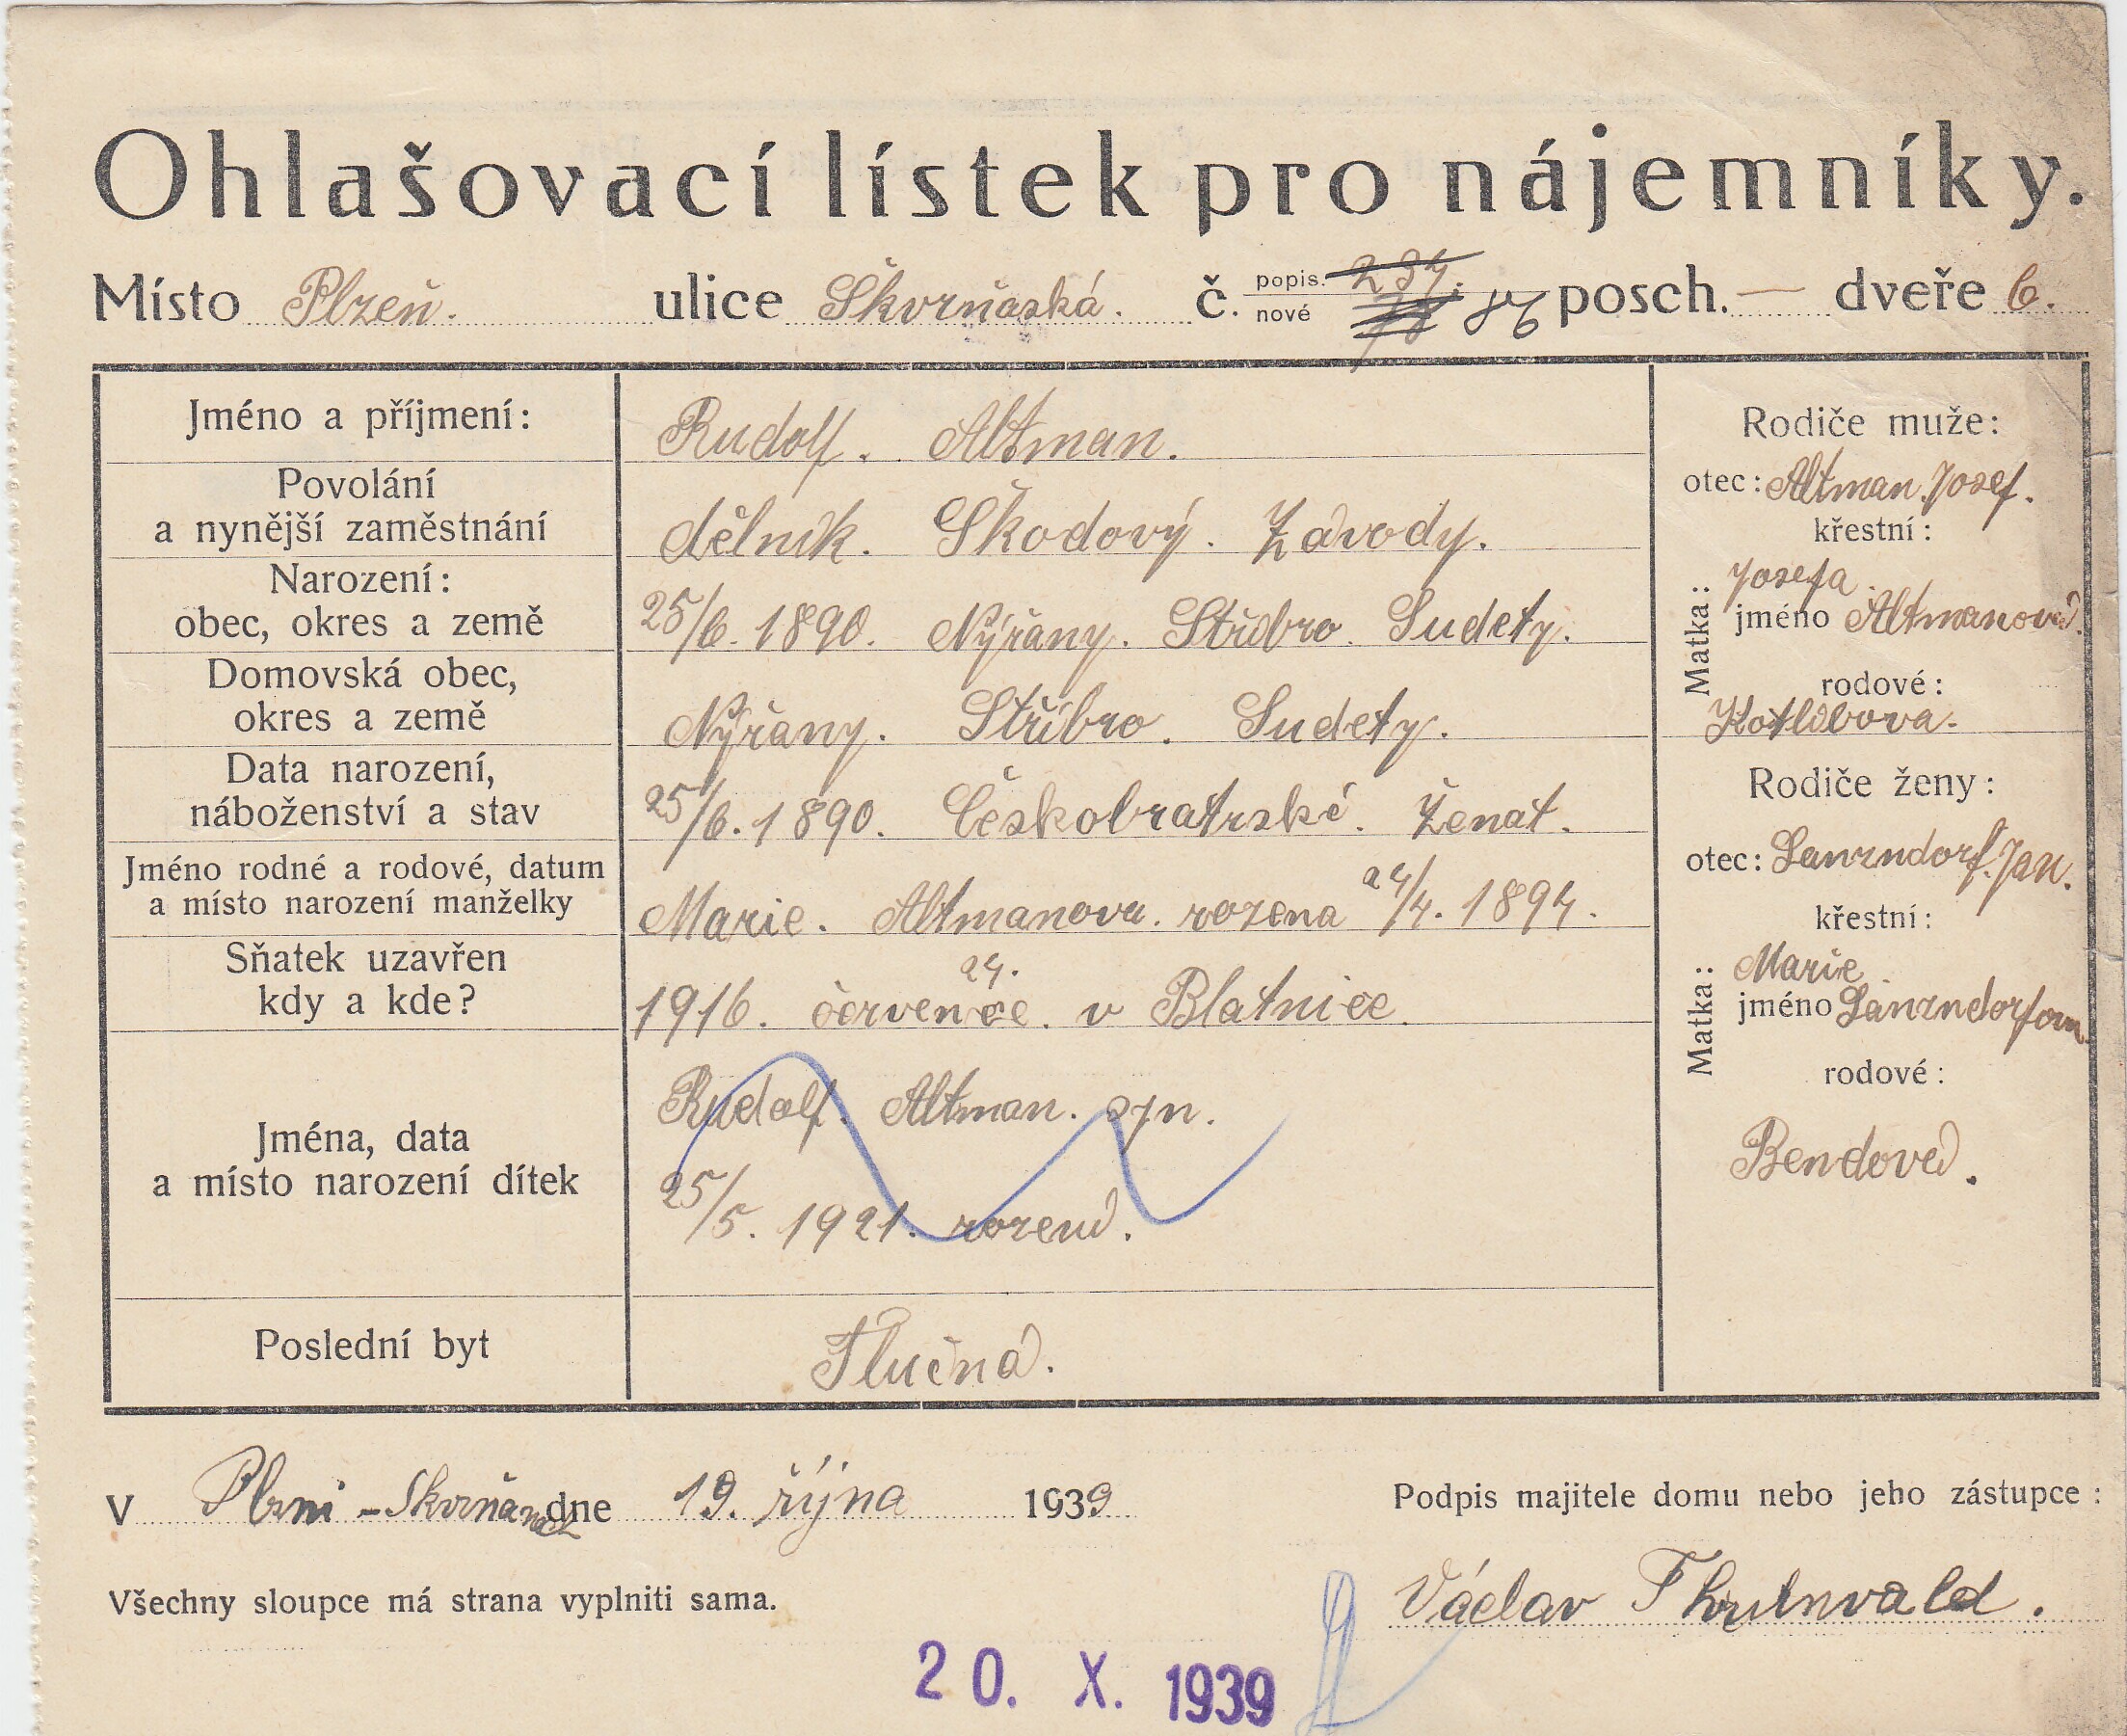 Ohlašovací lístek pro nájemníky.
Místo Plzeň. ulice Škvrňaská. č. popis. 237. nové 87 posch. — dveře 6.
Jméno a příjmení: Rudolf. Altman.
Povolání
a nynější zaměstnání dělník. Škodový. Závody.
Narození:
obec, okres a země 25/6. 1890. Nýřany. Stříbro. Sudety.
Domovská obec,
okres a země Nýřany. Stříbro. Sudety.
Data narození,
náboženství a stav 25/6. 1890. Českobratrské. Ženat.
Jméno rodné a rodové, datum
a místo narození manželky Marie. Altmanova. rozena 24/4. 1894.
Sňatek uzavřen
kdy a kde? 1916. 24. července. v Blatnice.
Jména, data
a místo narození dítek
Rudolf. Altman. syn.
25/5. 1921. rozená.
Poslední byt Tlučná.
Rodiče muže:
otec: Altman Josef.
Matka: křestní:
Josefa
jméno Altmanová.
rodové:
Kotlibova.
Rodiče ženy:
otec: Janzndorf. Jan.
Matka: křestní:
Marie
jméno
rodové:
Bendová.
V Plzni - Škvrňanech dne 19. října 1939
Podpis majitele domu nebo jeho zástupce:
Všechny sloupce má strana vyplniti sama.
Václav
20. X. 1939